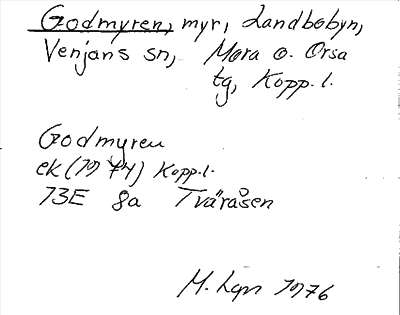 Godmyren, myr, Landbobyn,
Venjans sn, Mora o. Orsa
tg, Kopp. l.
Godmyren
ek (1974) Kopp. l.
13E 8a Tväråsen
M. 1976